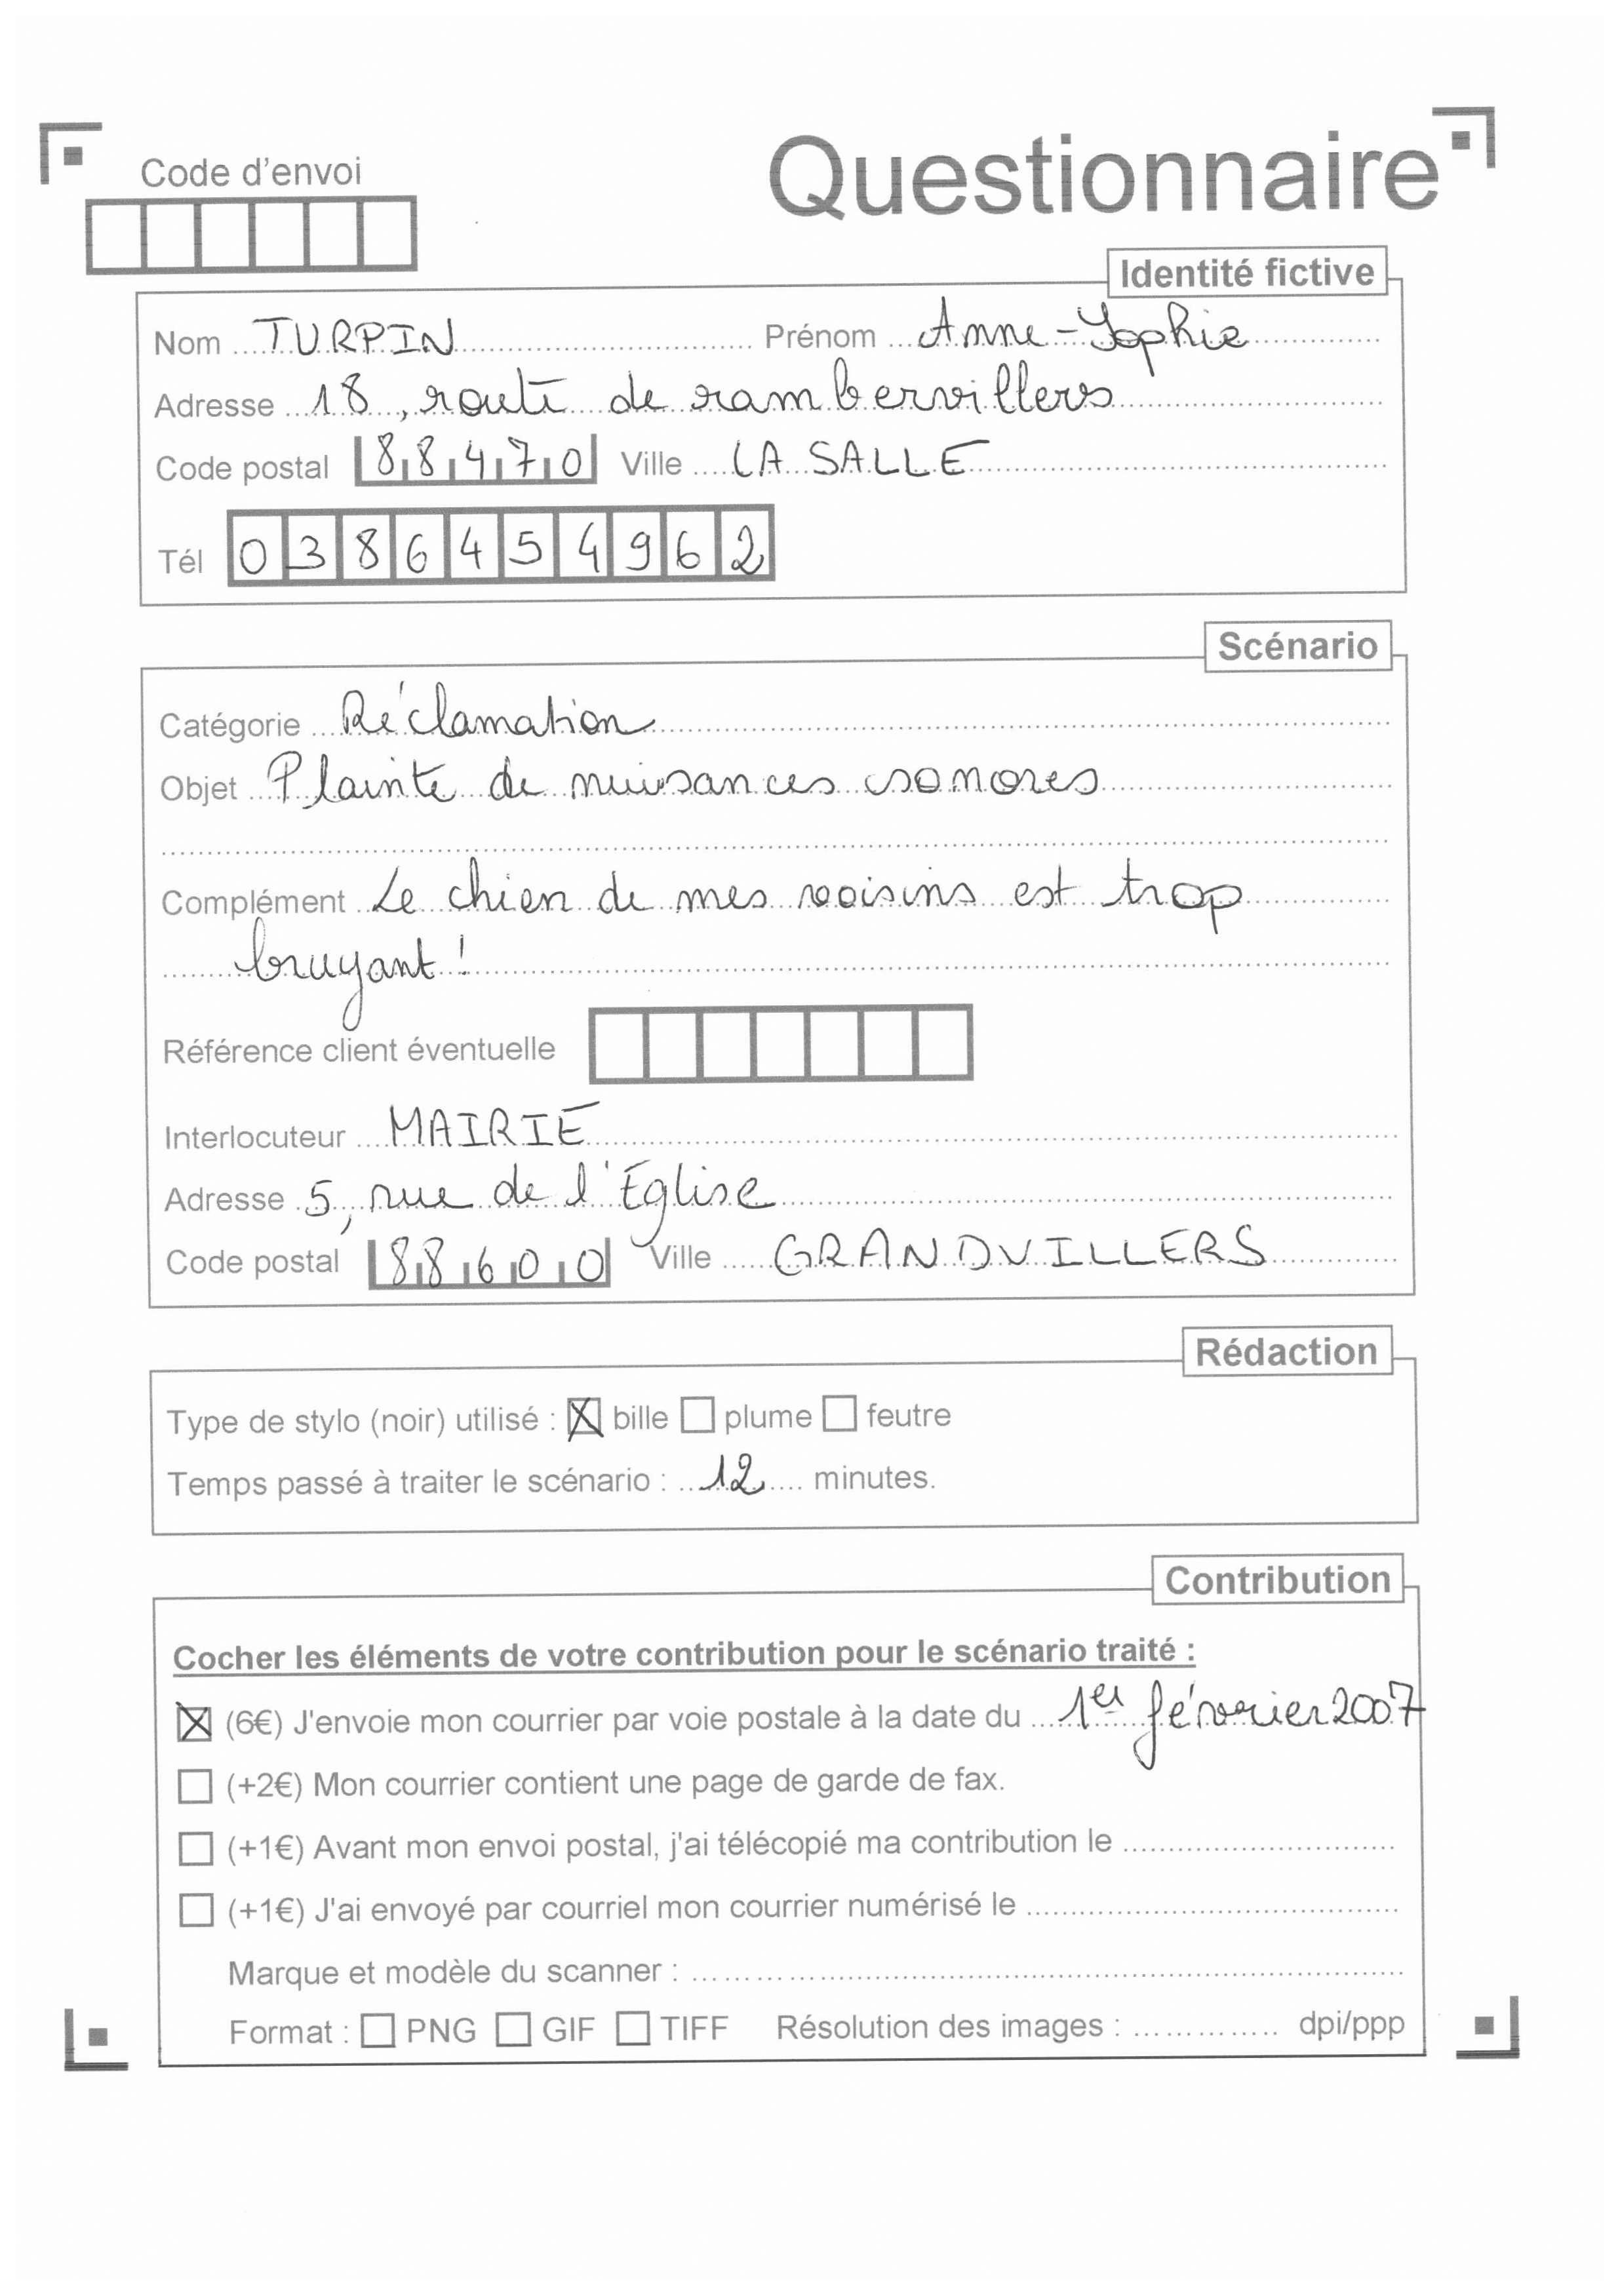 Code d'envoi
Questionnaire
Identité fictive
Nom TURPIN Prénom Anne-Sophie
Adresse 18, route de rambervillers
Code postal 88470 Ville LA SALLE
Tél 0386454962
Scénario
Catégorie Réclamation
Objet Plainte de nuisances sonores
Complément Le chien de mes voisins est trop
bruyant !
Référence client éventuelle
Interlocuteur MAIRIE
Adresse 5, rue de l'Eglise
Code postal 88600 Ville GRANDVILLERS
Rédaction
Type de stylo (noir) utilisé : ☒ bille ☐ plume ☐ feutre
Temps passé à traiter le scénario : 12 minutes.
Contribution
Cocher les éléments de votre contribution pour le scénario traité :
☒ (6€) J'envoie mon courrier par voie postale à la date du 1er février 2007
☐ (+2€) Mon courrier contient une page de garde de fax.
☐ (+1€) Avant mon envoi postal, j'ai télécopié ma contribution le
☐ (+1€) J'ai envoyé par courriel mon courrier numérisé le
Marque et modèle du scanner :
Format : ☐ PNG ☐ GIF ☐ TIFF Résolution des images : dpi/ppp